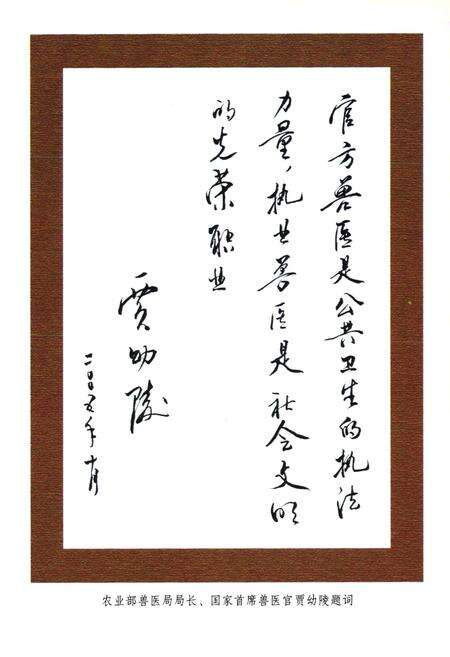 官方兽医是公共卫生的执法
力量，执业兽医是社会文明
的光荣职业
贾幼陵
二〇〇五年十月
农业部兽医局局长、国家首席兽医官贾幼陵题词